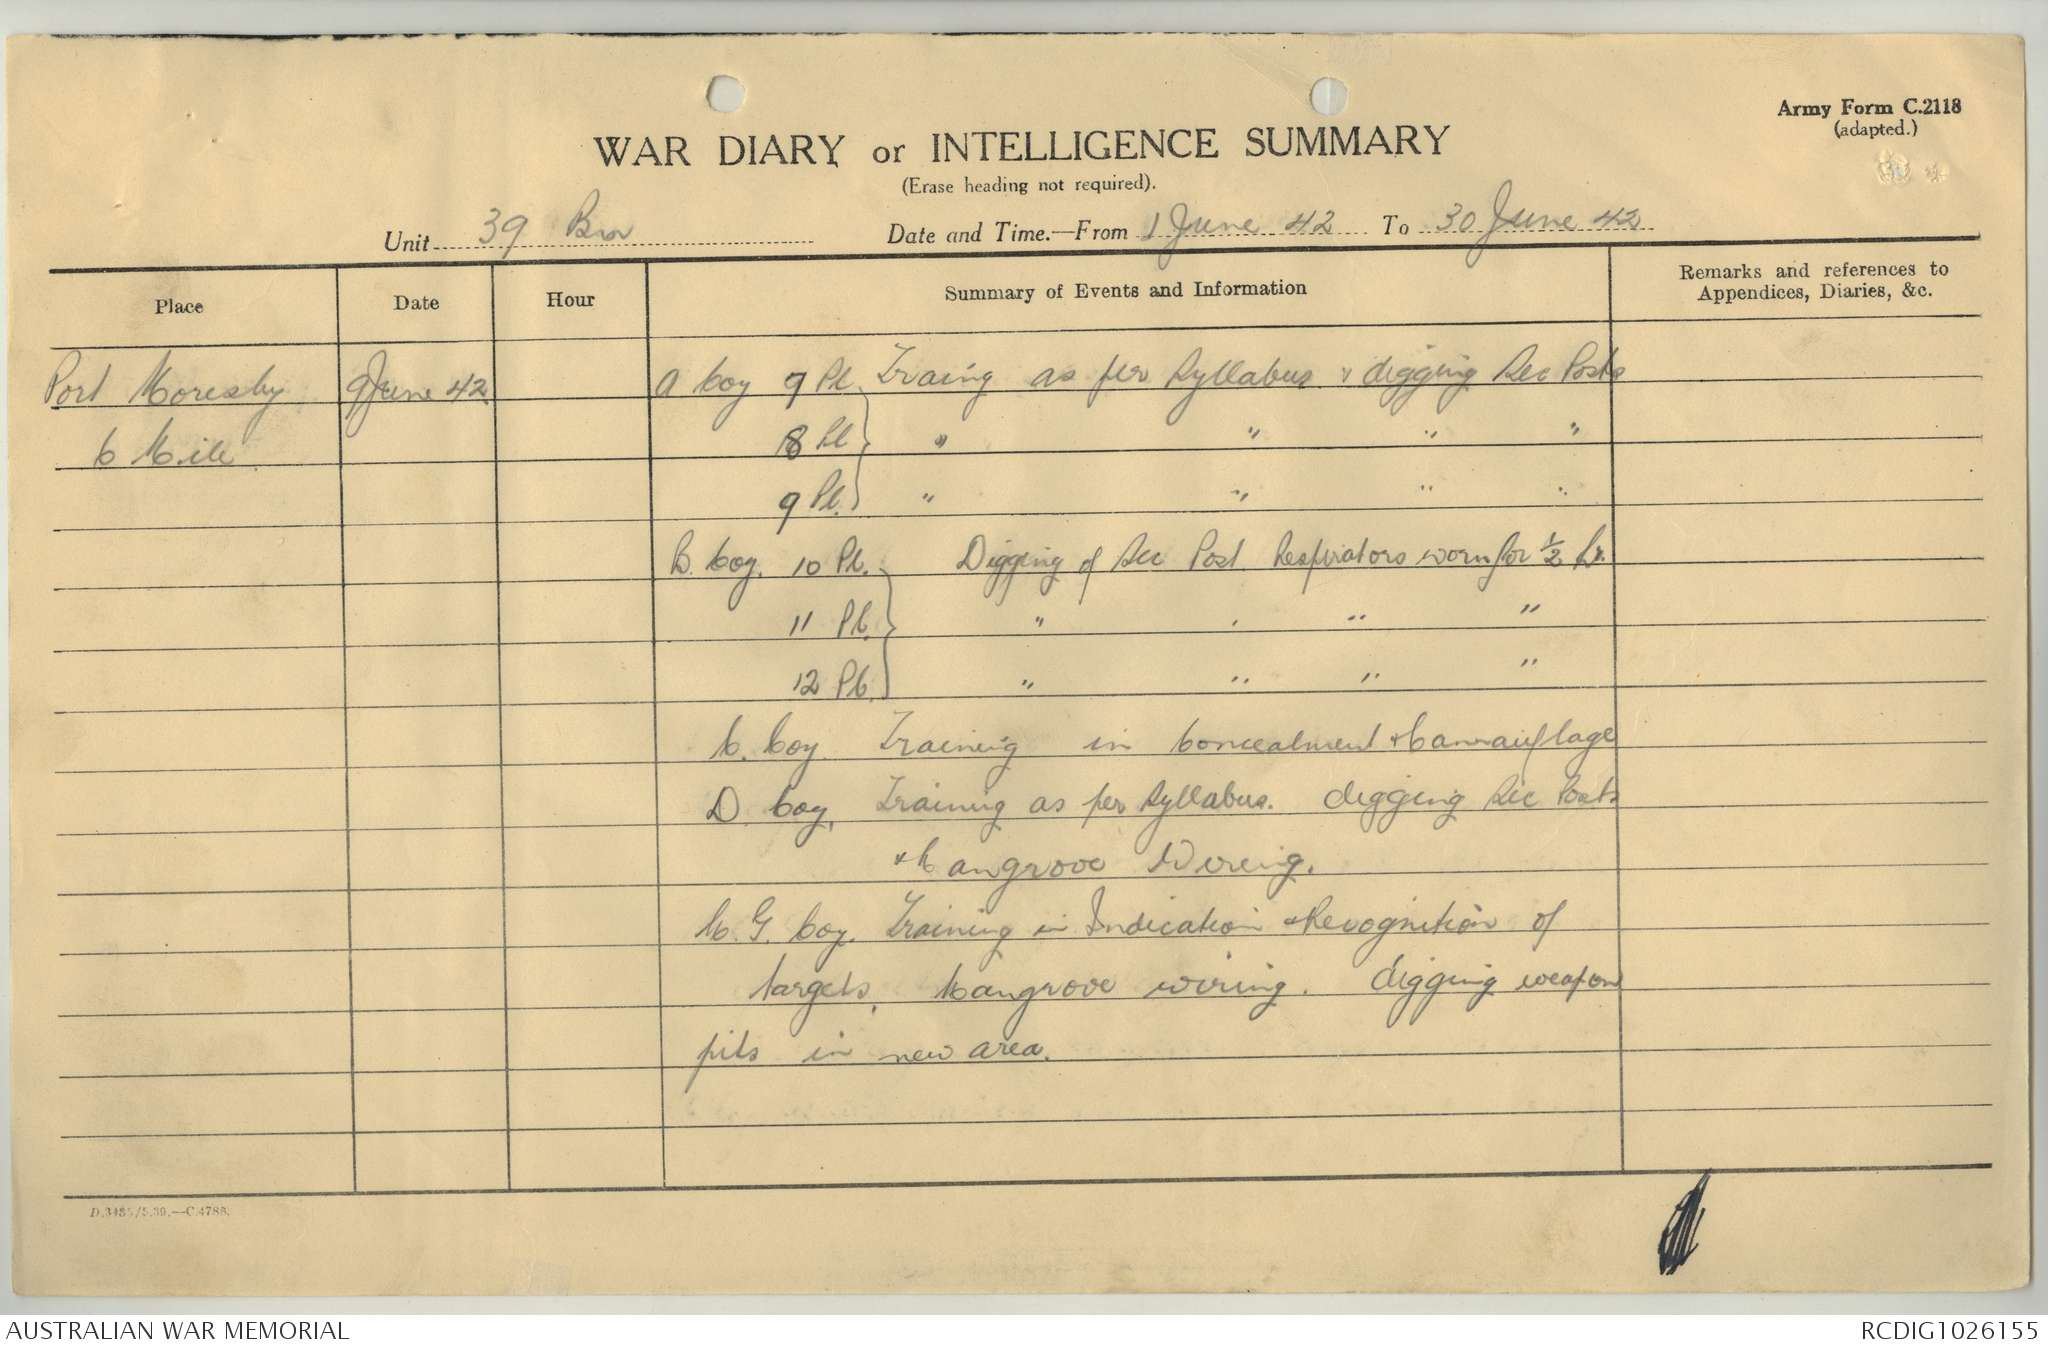 Army Form C.2118
(adapted.)
WAR DIARY or INTELLIGENCE SUMMARY
(Erase heading not required).
Unit 39 Bn Date and Time.—From 1 June 42 To 30 June 42
Place Date Hour Summary of Events and Information Remarks and references to Appendices, Diaries, &c.
Port Moresby 9 June 42 A Coy 7 Pl. Traing as per Syllabus & digging Sec Posts
6 Mile 8 Pl " " " "
9 Pl. " " " "
B. Coy. 10 Pl. Digging of Sec Post Respirators worn for ½ hr.
11 Pl. " " " "
12 Pl. " " " "
C. Coy. Training in Concealment & Camouflage
D Coy. Training as per Syllabus. digging Sec Posts
& Mangrove Wireing.
M.G. Coy. Training in Indication & Recognition of
targets, Mangrove wiring. digging weapon
pits in new area.
D.3485/5.39.—C.4788.
AUSTRALIAN WAR MEMORIAL RCDIG1026155